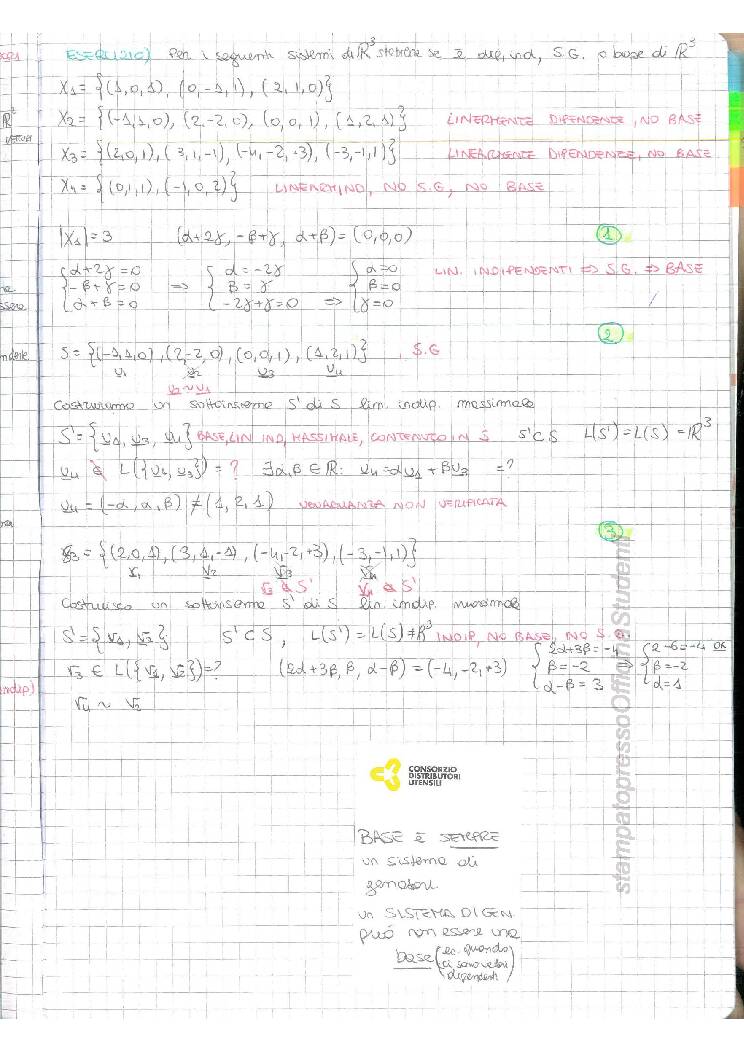 ESERCIZIO) Per i seguenti sistemi di ℝ³ stabilire se è dip, ind, S.G. o base di ℝ³
X₁ = {(1,0,1), (0,-1,1), (2,1,0)}
X₂ = {(-1,1,0), (2,-2,0), (0,0,1), (1,2,1)} LINERMENTE DIPENDENTE, NO BASE
X₃ = {(2,0,1), (3,1,-1), (-4,-2,+3), (-3,-1,1)} LINEARMENTE DIPENDENTE, NO BASE
X₄ = {(0,1,1), (-1,0,2)} LINEARM, IND, NO S.G, NO BASE
|X₁| = 3 (α+2γ, -β+γ, α+β) = (0,0,0) 1
{α+2γ=0 {α=-2γ {α=0
{-β+γ=0 ⇒ {β=γ {β=0 LIN. INDIPENDENTI ⇒ S.G. ⇒ BASE
{α+β=0 {-2γ+γ=0 ⇒ {γ=0
2
S = {(-1,1,0), (2,-2,0), (0,0,1), (1,2,1)} S.G
v₁ v₂ v₃ v₄
v₂ ~ v₁
Costruiamo un sottoinsieme S' di S lin. indip. massimale
S' = {v₁, v₃, v₄} BASE, LIN IND, MASSIMALE, CONTENUTO IN S S'⊂S L(S') = L(S) = ℝ³
v₄ ∉ L({v₁, v₃}) = ? ∃α,β ∈ ℝ: v₄ = αv₁ + βv₃ =?
v₄ = (-α, α, β) ≠ (1,2,1) UGUAGLIANZA NON VERIFICATA
3
S₃ = {(2,0,1), (3,1,-1), (-4,-2,+3), (-3,-1,1)}
v₁ v₂ v₃ v₄
v₃ ∉ S' v₄ ∉ S'
Costruisco un sottoinsieme S' di S lin. indip. massimale
S' = {v₁, v₂} S'⊂S, L(S') = L(S) ≠ ℝ³ INDIP, NO BASE, NO S.G.
v₃ ∈ L({v₁, v₂}) = ? (2α+3β, β, α-β) = (-4,-2,+3) {2α+3β=-4 {2-6=-4 OK
{β=-2 ⇒ {β=-2
{α-β=3 {α=1
v₄ ~ v₂
CONSORZIO
DISTRIBUTORI
UTENSILI
BASE È SEMPRE
un sistema di
generatori.
un SISTEMA DI GEN.
può non essere una
base (es. quando
ci sono vettori
dipendenti)
stampatopressoOfficinaStudenti